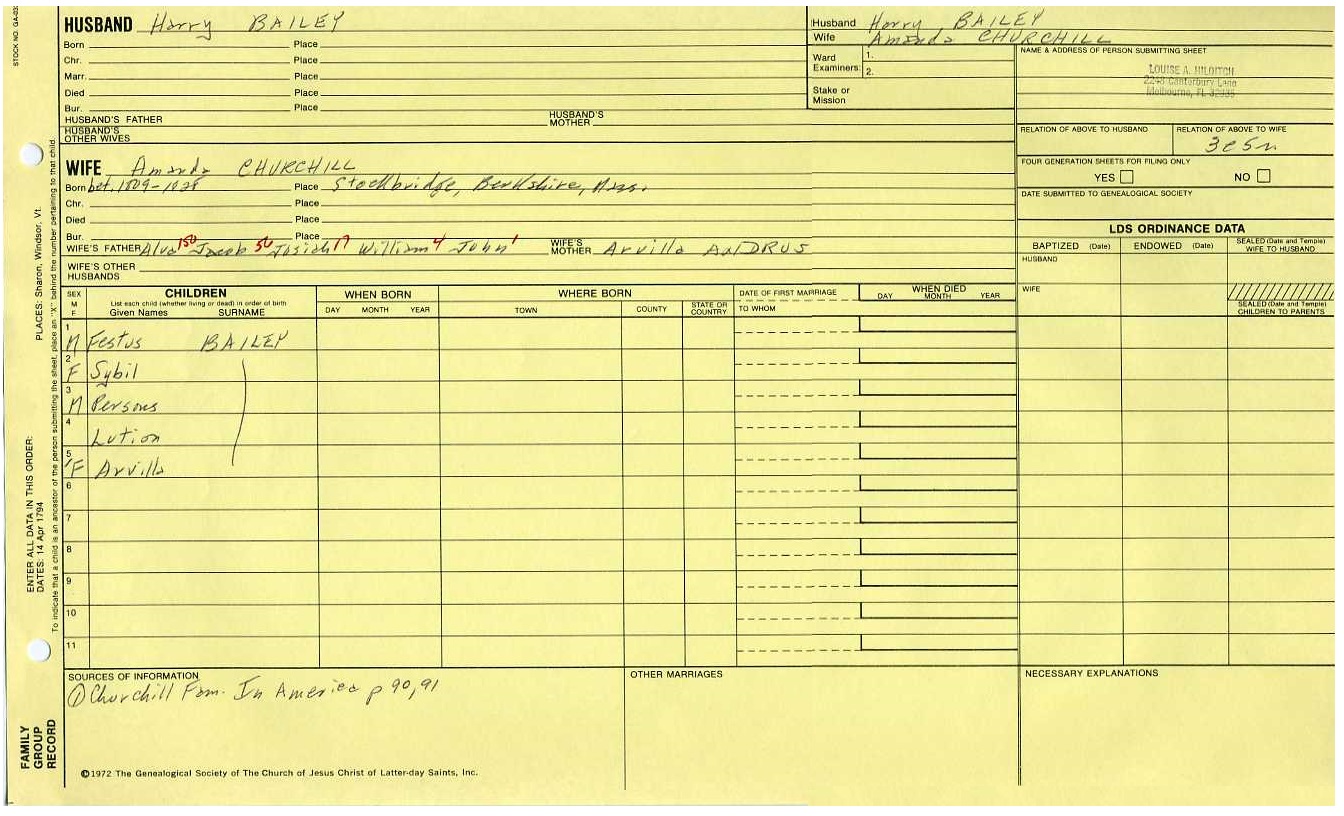 STOCK NO. GA-03
HUSBAND Harry BAILEY
Born Place
Chr. Place
Marr. Place
Died Place
Bur. Place
HUSBAND'S FATHER HUSBAND'S MOTHER
HUSBAND'S OTHER WIVES
Husband Harry BAILEY
Wife Amanda CHURCHILL
Ward Examiners: 1.
2.
Stake or Mission
NAME & ADDRESS OF PERSON SUBMITTING SHEET
LOUISE A. HILDITCH
2248 Canterbury Lane
Melbourne, FL 32935
RELATION OF ABOVE TO HUSBAND RELATION OF ABOVE TO WIFE
3c5r
FOUR GENERATION SHEETS FOR FILING ONLY
YES NO
DATE SUBMITTED TO GENEALOGICAL SOCIETY
WIFE Amanda CHURCHILL
Born bet. 1809-1828 Place Stockbridge, Berkshire, Mass.
Chr. Place
Died Place
Bur. Place
WIFE'S FATHER Alva 150 Jacob 50 Josiah 17 William 4 John 1 WIFE'S MOTHER Arvilla AnDRUS
WIFE'S OTHER HUSBANDS
LDS ORDINANCE DATA
BAPTIZED (Date) ENDOWED (Date) SEALED (Date and Temple) WIFE TO HUSBAND
HUSBAND
WIFE
SEALED (Date and Temple) CHILDREN TO PARENTS
SEX M F CHILDREN List each child (whether living or dead) in order of birth Given Names SURNAME
WHEN BORN DAY MONTH YEAR
WHERE BORN TOWN COUNTY STATE OR COUNTRY
DATE OF FIRST MARRIAGE TO WHOM
WHEN DIED DAY MONTH YEAR
1 M Festus BAILEY
2 F Sybil
3 M Persons
4 Lution
5 F Arvilla
6
7
8
9
10
11
SOURCES OF INFORMATION
① Churchill Fam. In America p 90, 91
OTHER MARRIAGES
NECESSARY EXPLANATIONS
©1972 The Genealogical Society of The Church of Jesus Christ of Latter-day Saints, Inc.
FAMILY GROUP RECORD
ENTER ALL DATA IN THIS ORDER:
DATES: 14 Apr 1794
PLACES: Sharon, Windsor, Vt.
To indicate that a child is an ancestor of the person submitting the sheet, place an "X" behind the number pertaining to that child.